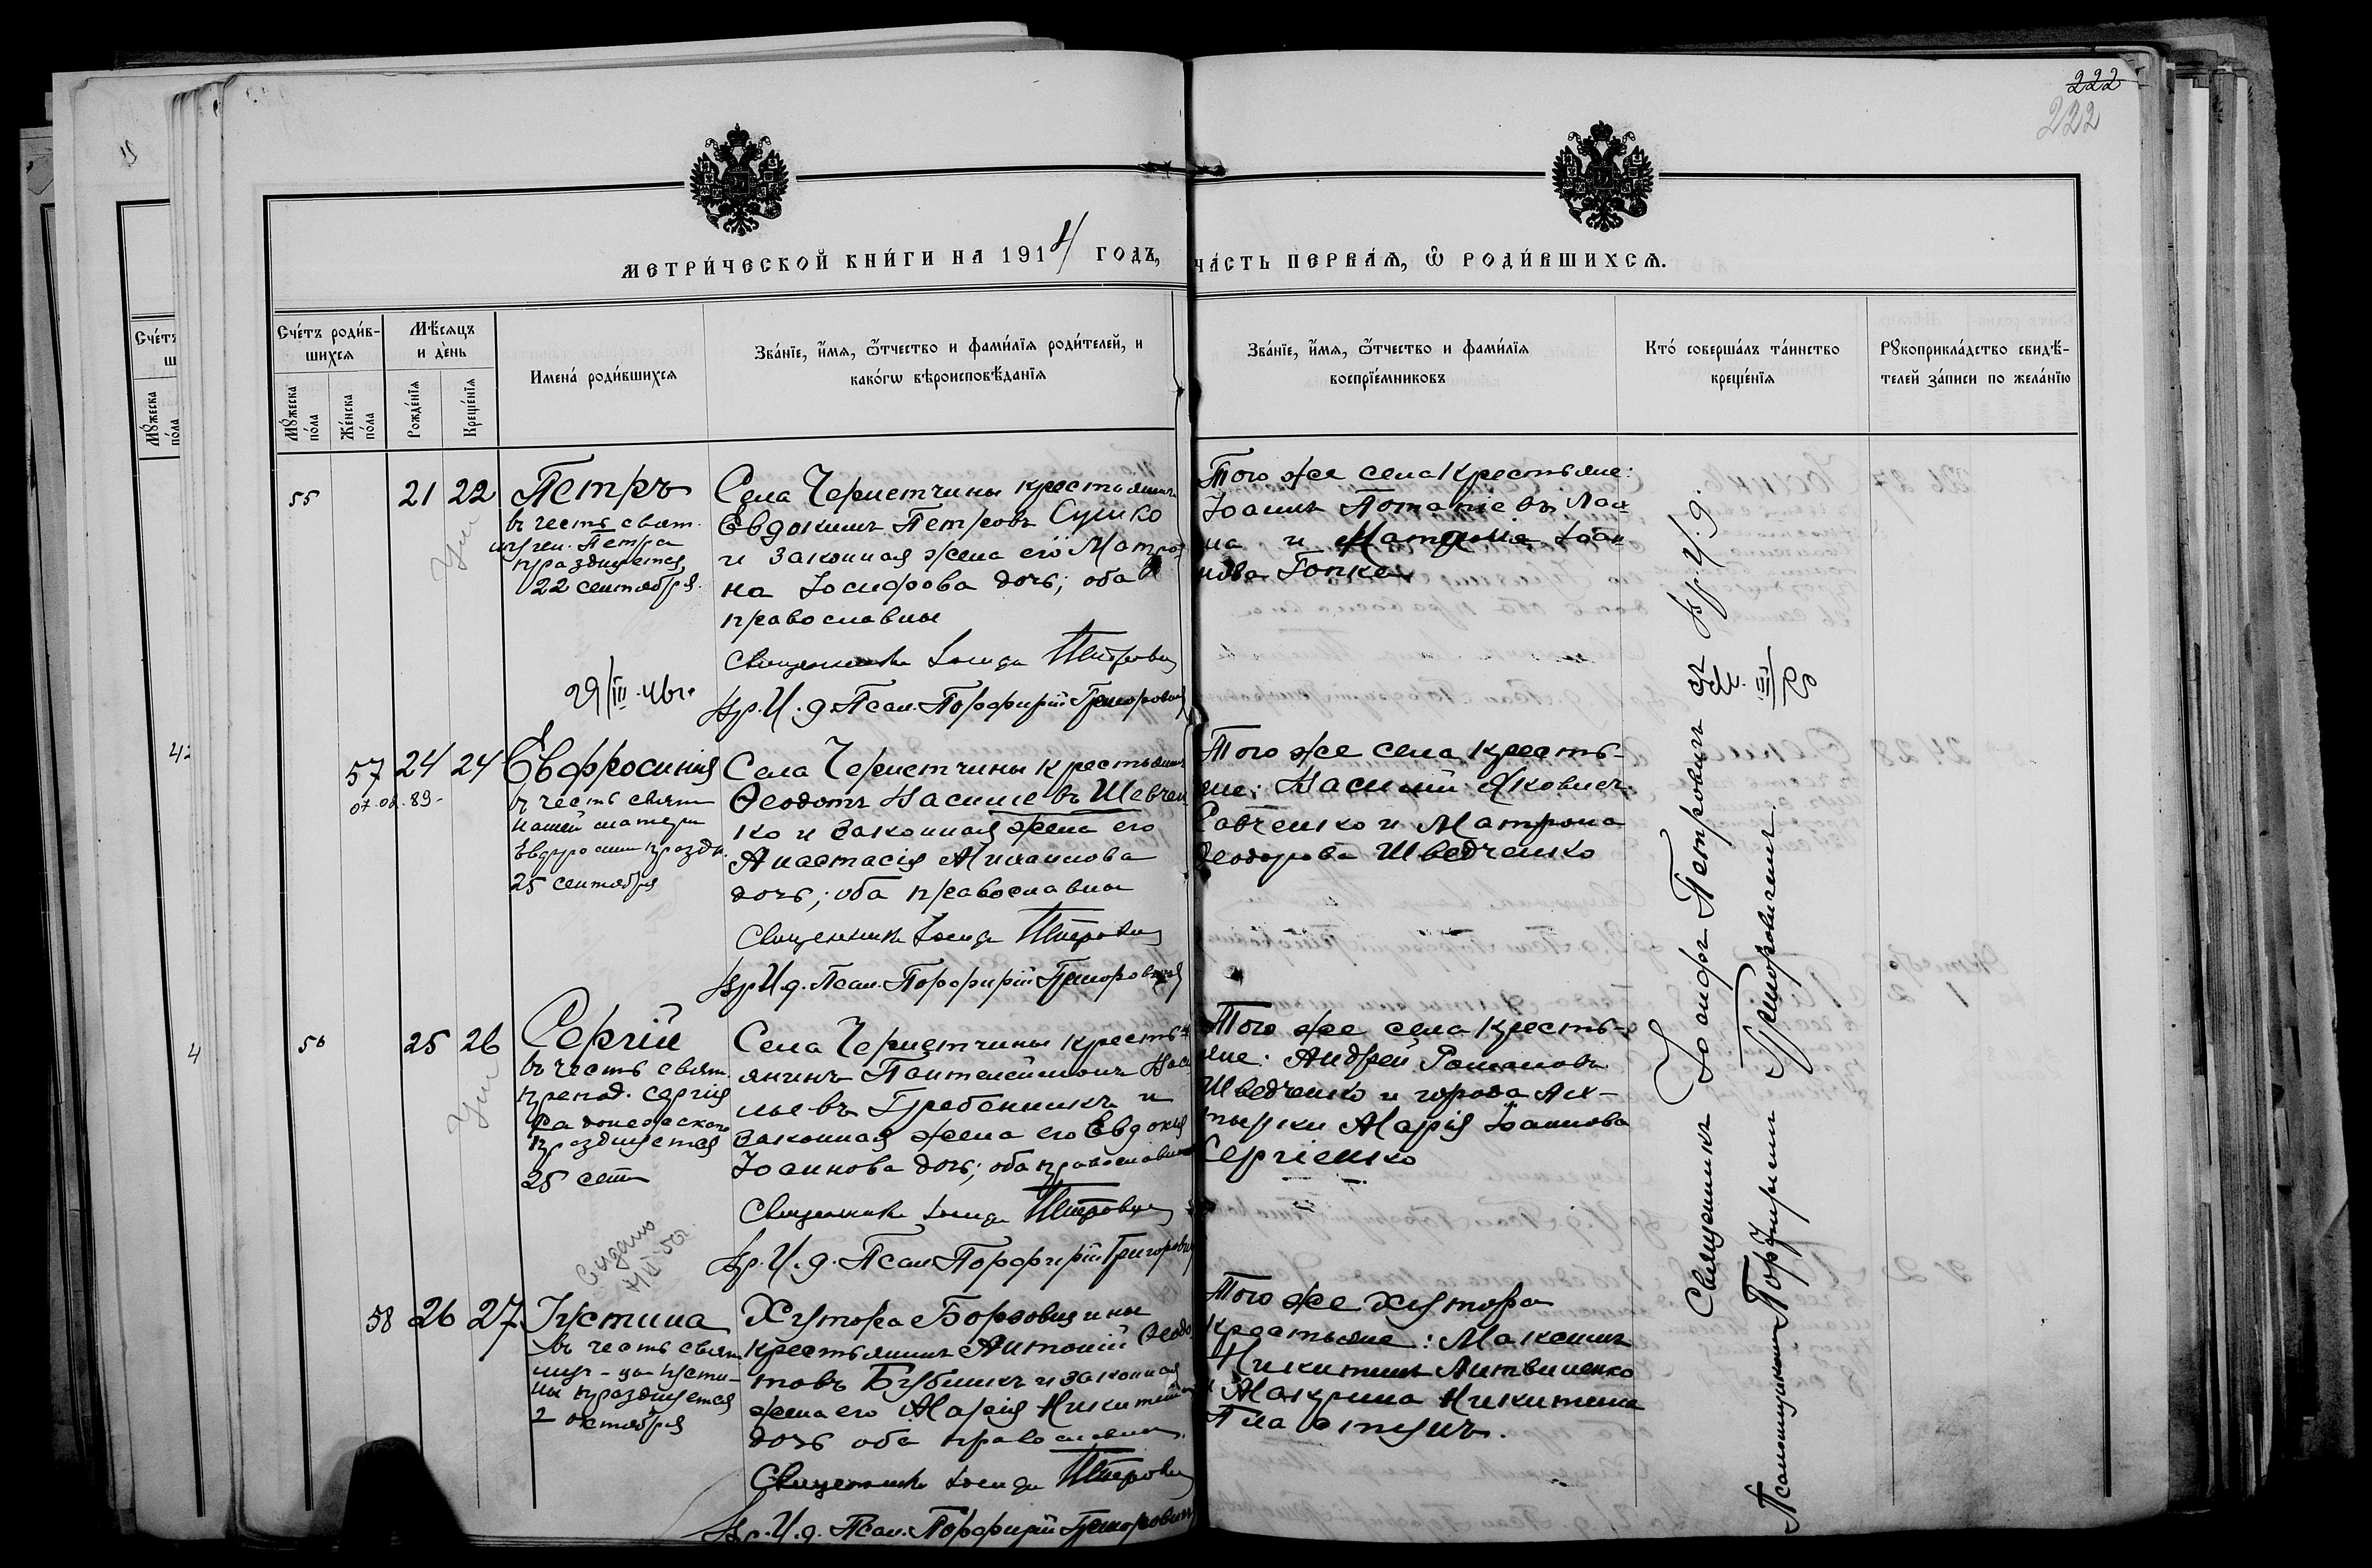 222
222
МЕТРИ́ЧЕСКОЙ КНИ́ГИ НА 1914 ГОДЪ, ЧА́СТЬ ПЕ́РВАѦ, Ѿ РОДИ́ВШИХСѦ.
Сче́тъ роди́в-
шихсѧ
Мѣ́сѧцъ
и де́нь
Имена́ роди́вшихсѧ
Зва́нїе, и́мѧ, ѻ́тчество и фами́лїѧ роди́телей, и
како́гѡ вѣроисповѣ́данїѧ
Зва́нїе, и́мѧ, ѻ́тчество и фами́лїѧ
воспрїе́мниковъ
Кто́ соверша́лъ та́инство
креще́нїѧ
Рꙋкоприкла́дство свидѣ́-
телей за́писи по жела́нїю
Мꙋ́жеска
по́ла
Же́нска
по́ла
Рожде́нїѧ
Креще́нїѧ
55
21 22
Петръ
въ честь свят.
муч. Петра
празднуется
22 сентября.
Села Чернетчины крестьянинъ
Евдокимъ Петровъ Сушко
и законная жена его Матро-
на Іосифова дочь; оба
православные
Священникъ Іосифъ Петровичъ
Вр. И. д. Псал. Порфирій Григоровичъ
Того же села крестьяне:
Іоаннъ
и
Іоан
нова
29/III
57 24 24
07.08.89
Евфросинія
въ честь свят
нашей матери
Евфросиніи праздн.
25 сентября
Села Чернетчины крестьянинъ
Ѳеодотъ Васильевъ Шевчен
ко и законная жена его
Анастасія Михаилова
дочь; оба православные
Священникъ Іосифъ Петровичъ
Вр. И. д. Псал. Порфирій Григоровичъ
Того же села кресть-
яне: Василій Яковлевъ
Савченко и Матрона
Ѳеодорова Шведченко
56
25 26
Сергій
въ честь свят.
препод. Сергія
Радонежскаго
празднуется
25 сент
Села Чернетчины кресть-
янинъ Пантелеймонъ Васи
льевъ Гребенникъ и
законная жена его Евдокія
Іоаннова дочь; оба православные
Священникъ Іосифъ Петровичъ
Вр. И. д. Псал. Порфирій Григоровичъ
Того же села кресть-
яне: Андрей Романовъ
Шведченко и города Ах-
тырки Марія Іоаннова
Сергіенко
58 26 27
Іустина
въ честь свят
муч-цы Іусти-
ны празднуется
2 октября
Хутора Борзовщины
крестьянинъ Антоній Ѳеодо
товъ Бубликъ и законная
жена его Марія Никитина
дочь оба православные
Священникъ Іосифъ Петровичъ
Вр. И. д. Псал. Порфирій Григоровичъ
Того же хутора
крестьяне: Максимъ
Никитинъ Литвиненко
и Макрина Никитина
Священникъ Іосифъ Петровичъ съ Вр. И. д.
Псаломщикомъ Порфиріемъ Григоровичемъ.